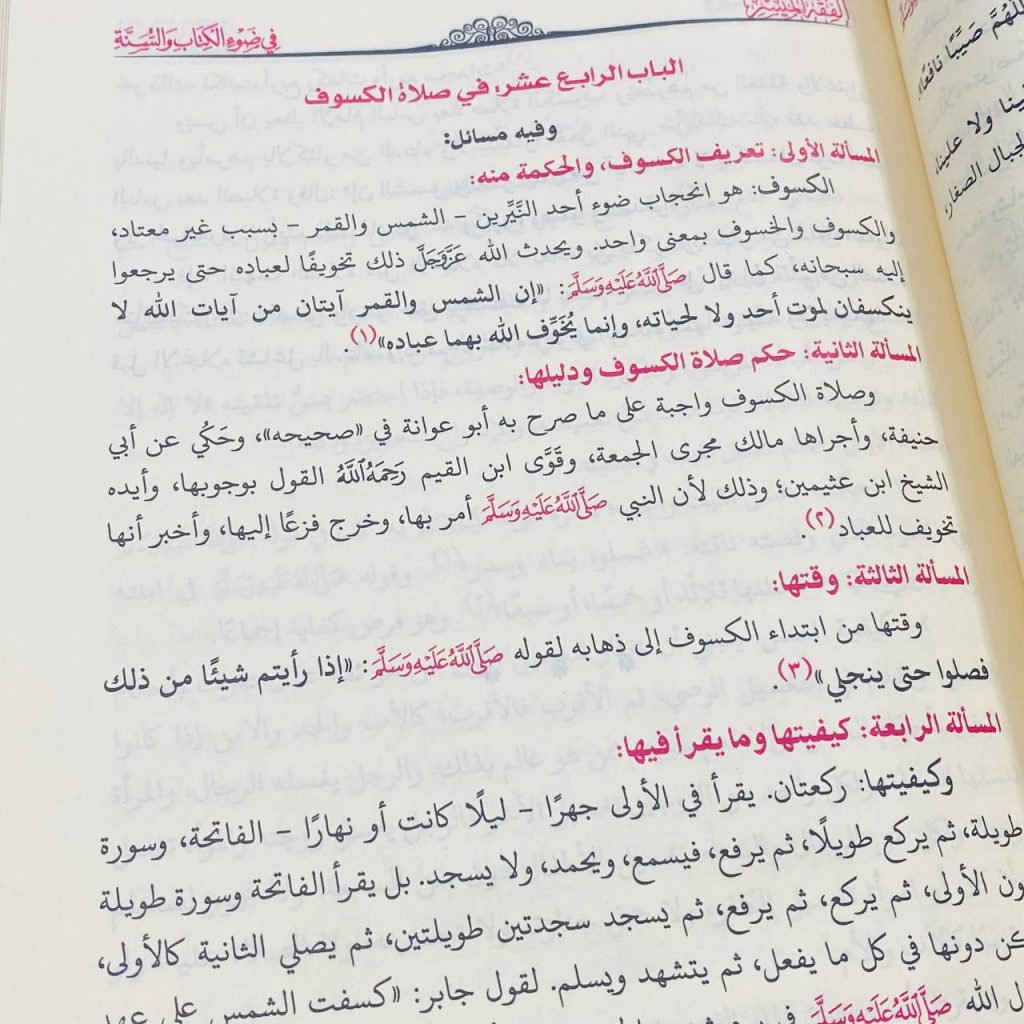 الفقه الميسر
في ضوء الكتاب والسنة
اللهم صيبًا نافعًا
ولا علينا،
الجبال الصغار،
الباب الرابع عشر: في صلاة الكسوف
وفيه مسائل:
المسألة الأولى: تعريف الكسوف، والحكمة منه:
الكسوف: هو انحجاب ضوء أحد النَّيِّرين – الشمس والقمر – بسبب غير معتاد،
والكسوف والخسوف بمعنى واحد. ويحدث الله عَزَّوَجَلَّ ذلك تخويفًا لعباده حتى يرجعوا
إليه سبحانه، كما قال صَلَّى اللَّهُ عَلَيْهِ وَسَلَّمَ: «إن الشمس والقمر آيتان من آيات الله لا
ينكسفان لموت أحد ولا لحياته، وإنما يُخَوِّف الله بهما عباده»(١).
المسألة الثانية: حكم صلاة الكسوف ودليلها:
وصلاة الكسوف واجبة على ما صرح به أبو عوانة في «صحيحه»، وحَكُي عن أبي
حنيفة، وأجراها مالك مجرى الجمعة، وقَوَّى ابن القيم رَحِمَهُ اللَّهُ القول بوجوبها، وأيده
الشيخ ابن عثيمين؛ وذلك لأن النبي صَلَّى اللَّهُ عَلَيْهِ وَسَلَّمَ أمر بها، وخرج فزعًا إليها، وأخبر أنها
تخويف للعباد(٢).
المسألة الثالثة: وقتها:
وقتها من ابتداء الكسوف إلى ذهابه لقوله صَلَّى اللَّهُ عَلَيْهِ وَسَلَّمَ: «إذا رأيتم شيئًا من ذلك
فصلوا حتى ينجلي»(٣).
المسألة الرابعة: كيفيتها وما يقرأ فيها:
وكيفيتها: ركعتان. يقرأ في الأولى جهرًا – ليلًا كانت أو نهارًا – الفاتحة، وسورة
طويلة، ثم يركع طويلًا، ثم يرفع، فيسمع، ويحمد، ولا يسجد. بل يقرأ الفاتحة وسورة طويلة
الأولى، ثم يركع، ثم يرفع، ثم يسجد سجدتين طويلتين، ثم يصلي الثانية كالأولى،
دونها في كل ما يفعل، ثم يتشهد ويسلم. لقول جابر: «كسفت الشمس على عهد
الله صَلَّى اللَّهُ عَلَيْهِ وَسَلَّمَ في